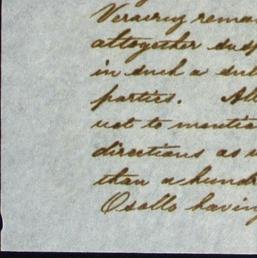 Veracruz rema
altogether susp
in such a sub
parties. All
not to mentio
directions as w
than a hundr
Osollo having